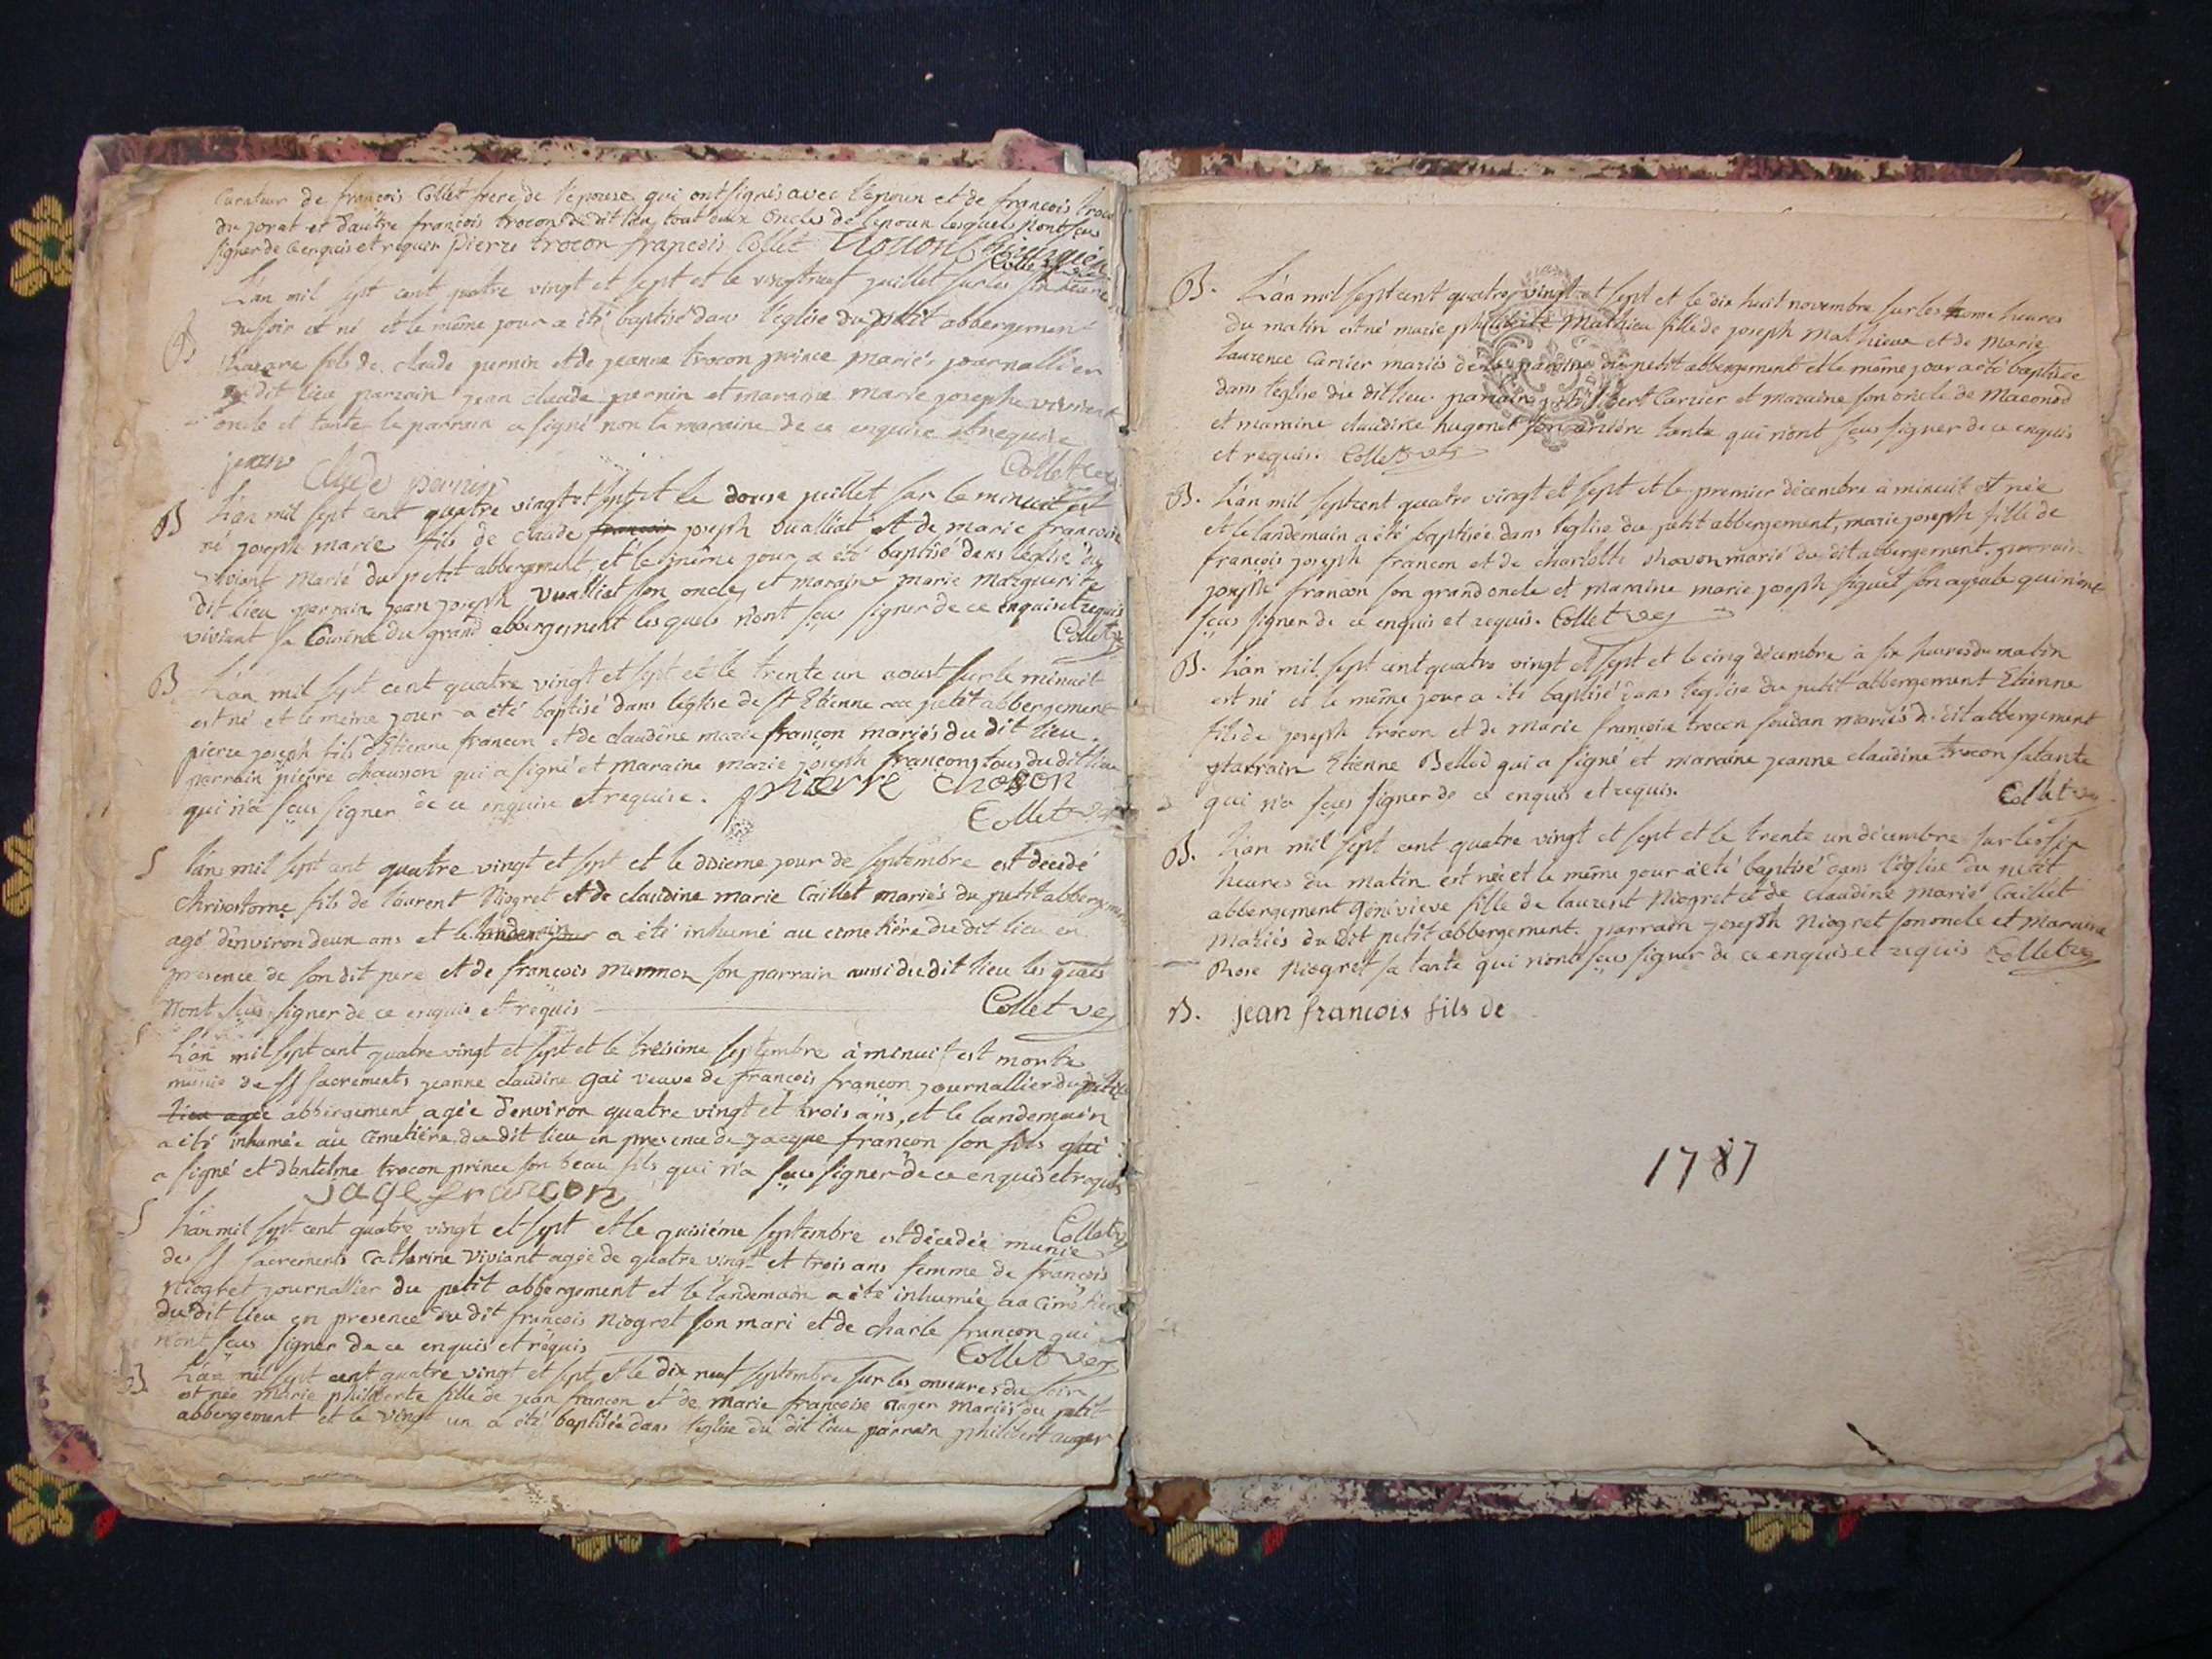 Curateur de françois Collet frere de l'epouse qui ont signés avec l'epoux et de françois
du jorat et d'autre françois trocon du dit lieu tout deux oncles de lepoux lesquels n'ont sçus
signer de ce enquis et requis pierre trocon françois Collet
Collet
L'an mil sept cent quatre vingt et sept et le vingt neuf juillet sur les six heures
du soir est né et le même jour a été baptisé dans l'eglise du petit abbergement
fils de claude pernin et de jeanne trocon prince mariés journallier
dudit lieu parrain jean claude pernin et maraine marie josephe viviant
oncle et tante le parrain a signé non la maraine de ce enquise et requise
jean Clude pernin Collet vey
B L'an mil sept cent quatre vingt et sept et le douse juillet sur le minuit est
né joseph marie fils de claude françois joseph vualliat et de marie françoise
viviant marié du petit abbergement, et le même jour a été baptisé dans leglise du
dit lieu parrain jean joseph vualliat son oncle, et maraine marie marguerite
viviant sa Cousine du grand abbergement lesquels n'ont sçus signer de ce enquis et requis
Collet vey
B L'an mil sept cent quatre vingt et sept et le trente un aoust sur le minuit
est né et le même jour a été baptisé dans leglise de st Etienne petit abbergement
pierre joseph fils d'Etienne françon et de claudine marie françon mariés du dit lieu.
parrain pierre chausson qui a signé et maraine marie joseph françon, tous du dit lieu
qui n'a sçus signer de ce enquise et requise. phierre choson
Collet vey
S l'an mil sept cent quatre vingt et sept et le disieme jour de septembre est decedé
chrisostome fils de laurent Niogret et de claudine marie Caillet mariés du petit abbergement
agé d'environ deux ans et le landemain a été inhumé au cimetiére du dit lieu en
presence de son dit pere et de françois mermon son parrain aussi du dit lieu les quels
n'ont sçus signer de ce enquis et requis
Collet vey
S L'an mil sept cent quatre vingt et sept et le treisime septembre à minuit est morte
munie de SS sacrements jeanne claudine gai veuve de françois françon journallier du petit
lieu agée abbergement agée d'environ quatre vingt et trois ans, et le landemain
a été inhumée au cimetiére du dit lieu en presence de jacque françon son fils qui
a signé et d'antelme trocon prince son beau fils qui n'a sçus signer de ce enquis et requis
jaqe francon
Collet vey
S L'an mil sept cent quatre vingt et sept et le quisiéme septembre est décedée munie
des SS sacrements Catherine viviant agée de quatre vingt et trois ans femme de françois
Niogret journallier du petit abbergement et le landemain a été inhumée au cimetiere
du dit lieu en presence du dit françois niogret son mari et de charle françon qui
n'ont sçus signer de ce enquis et requis
Collet vey
B L'an mil sept cent quatre vingt et sept et le dix neuf septembre sur les onseures du soir
est née marie philiberte fille de jean françon et de marie françoise auger mariés du petit
abbergement et le vingt un a été baptisée dans l'eglise du dit lieu parrain philibert auger
B. L'an mil sept cent quatre vingt et sept et le dix huit novembre sur les heures
du matin est né marie philiberte Mathieu fille de joseph Mathieu et de Marie
laurence Carrier mariés de la paroisse du petit abbergement et le même jour a été baptisée
dans l'eglise du dit lieu. parrain philibert Carrier et maraine son oncle de Maconod
et maraine claudine hugonet son arriére tante qui n'ont sçus signer de ce enquis
et requis. Collet vey
B. L'an mil sept cent quatre vingt et sept et le premier décembre à minuit est née
et le landemain a été baptisée dans l'eglise du petit abbergement, marie joseph fille de
françois joseph françon et de charlotte chavon marié du dit abbergement. parrain
joseph françon son grand oncle et maraine marie joseph siguet son ayeule qui n'ont
sçus signer de ce enquis et requis. Collet vey
B. L'an mil sept cent quatre vingt et sept et le cinq décembre à six heures du matin
est né et le même jour a été baptisé dans l'eglise du petit abbergement Etienne
fils de joseph trocon et de marie françoise trocon soudan mariés du dit abbergement
parrain Etienne Bellod qui a signé et maraine jeanne claudine trocon sa tante
qui n'a sçus signer de ce enquis et requis.
Collet vey
B. L'an mil sept cent quatre vingt et sept et le trente un décembre sur les six
heures du matin est née et le même jour a été baptisé dans l'église du petit
abbergement génévieve fille de laurent Niogret et de claudine marie Caillet
mariés du dit petit abbergement. parrain joseph niogret son oncle et Maraine
Rose niogret sa tante qui n'ont sçus signer de ce enquis et requis Collet vey
B. jean francois fils de
1787